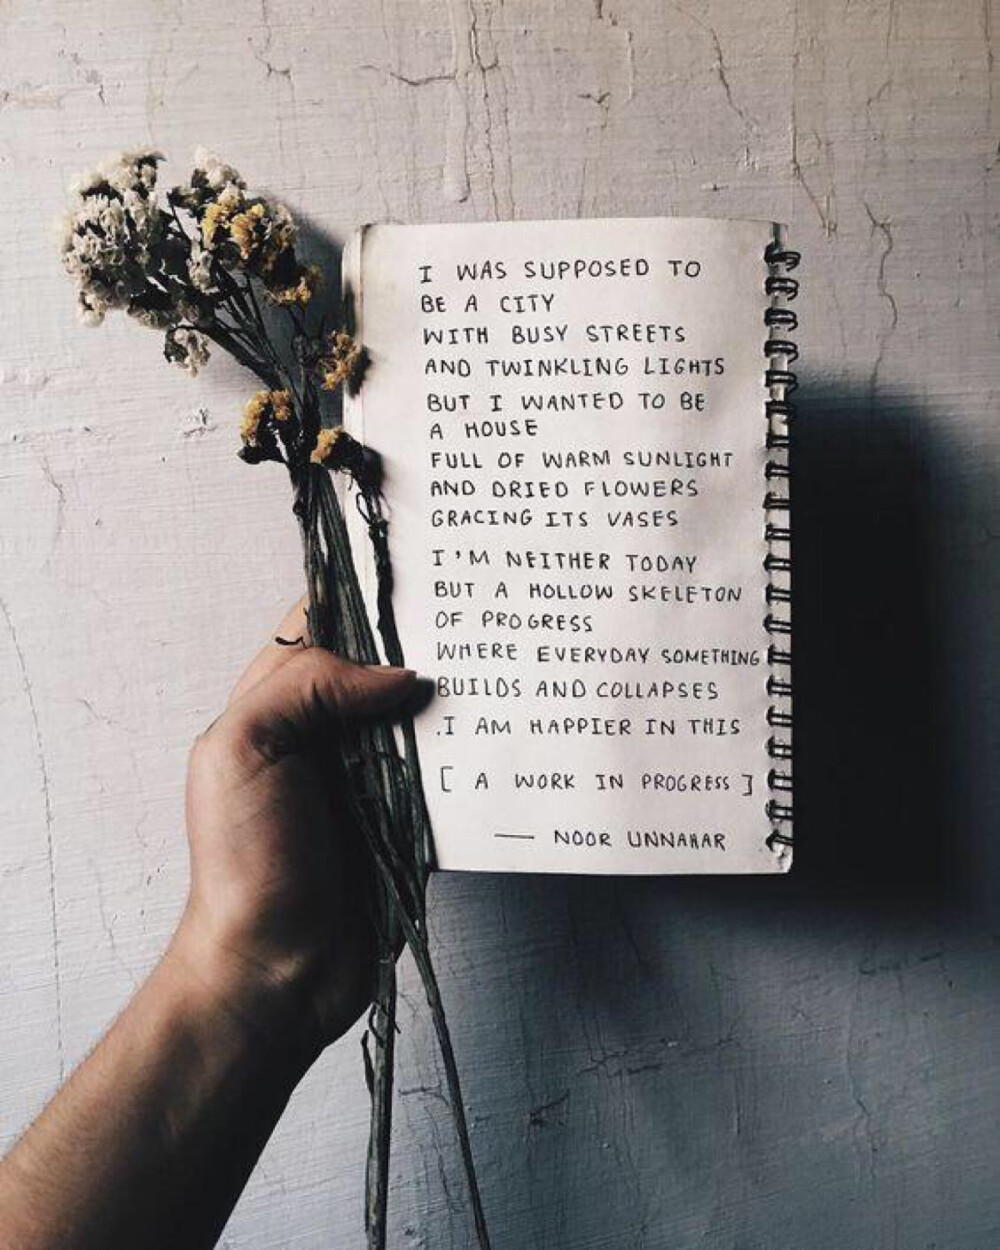 I WAS SUPPOSED TO
BE A CITY
WITH BUSY STREETS
AND TWINKLING LIGHTS
BUT I WANTED TO BE
A HOUSE
FULL OF WARM SUNLIGHT
AND DRIED FLOWERS
GRACING ITS VASES
I'M NEITHER TODAY
BUT A HOLLOW SKELETON
OF PROGRESS
WHERE EVERYDAY SOMETHING
BUILDS AND COLLAPSES
.I AM HAPPIER IN THIS
[ A WORK IN PROGRESS ]
— NOOR UNNAHAR